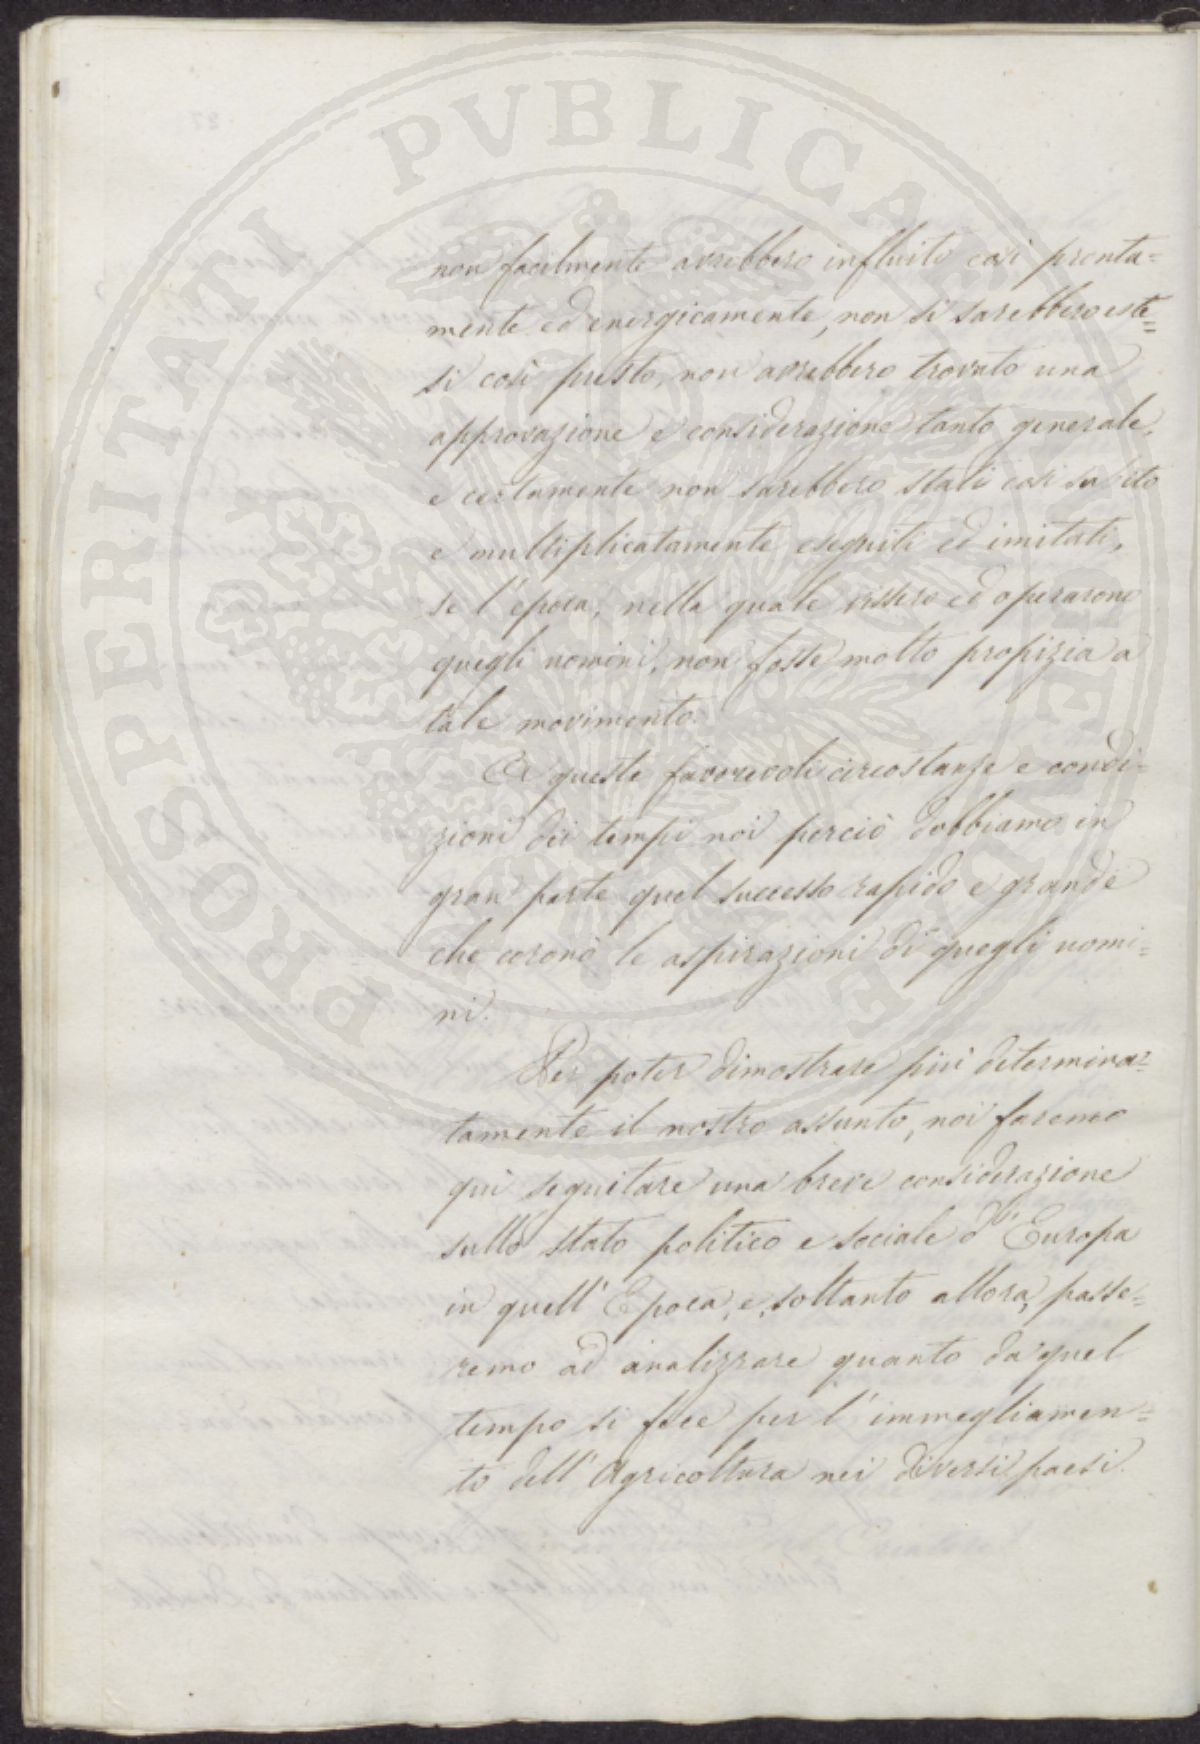 PROSPERITATI PVBLICAE
non facilmente avrebbero influito così pronta=
mente ed energicamente, non si sarebbero este=
si così presto, non avrebbero trovato una
approvazione e considerazione tanto generale,
e certamente non sarebbero stati così subito
e multiplicatamente eseguiti ed imitati,
se l'epoca, nella quale vissero ed operarono
quegli uomini, non fosse molto propizia a
tale movimento.
A queste favorevoli circostanze e condi=
zioni dei tempi noi perciò dobbiamo in
gran parte quel successo rapido e grande
che coronò le aspirazioni di quegli uomi=
ni.
Per poter dimostrare più determina=
tamente il nostro assunto, noi faremo
qui seguitare una breve considerazione
sullo stato politico e sociale d'Europa
in quell'Epoca, e, soltanto allora, passe=
remo ad analizzare quanto da quel
tempo si fece per l'immegliamen=
to dell'Agricoltura nei diversi paesi.